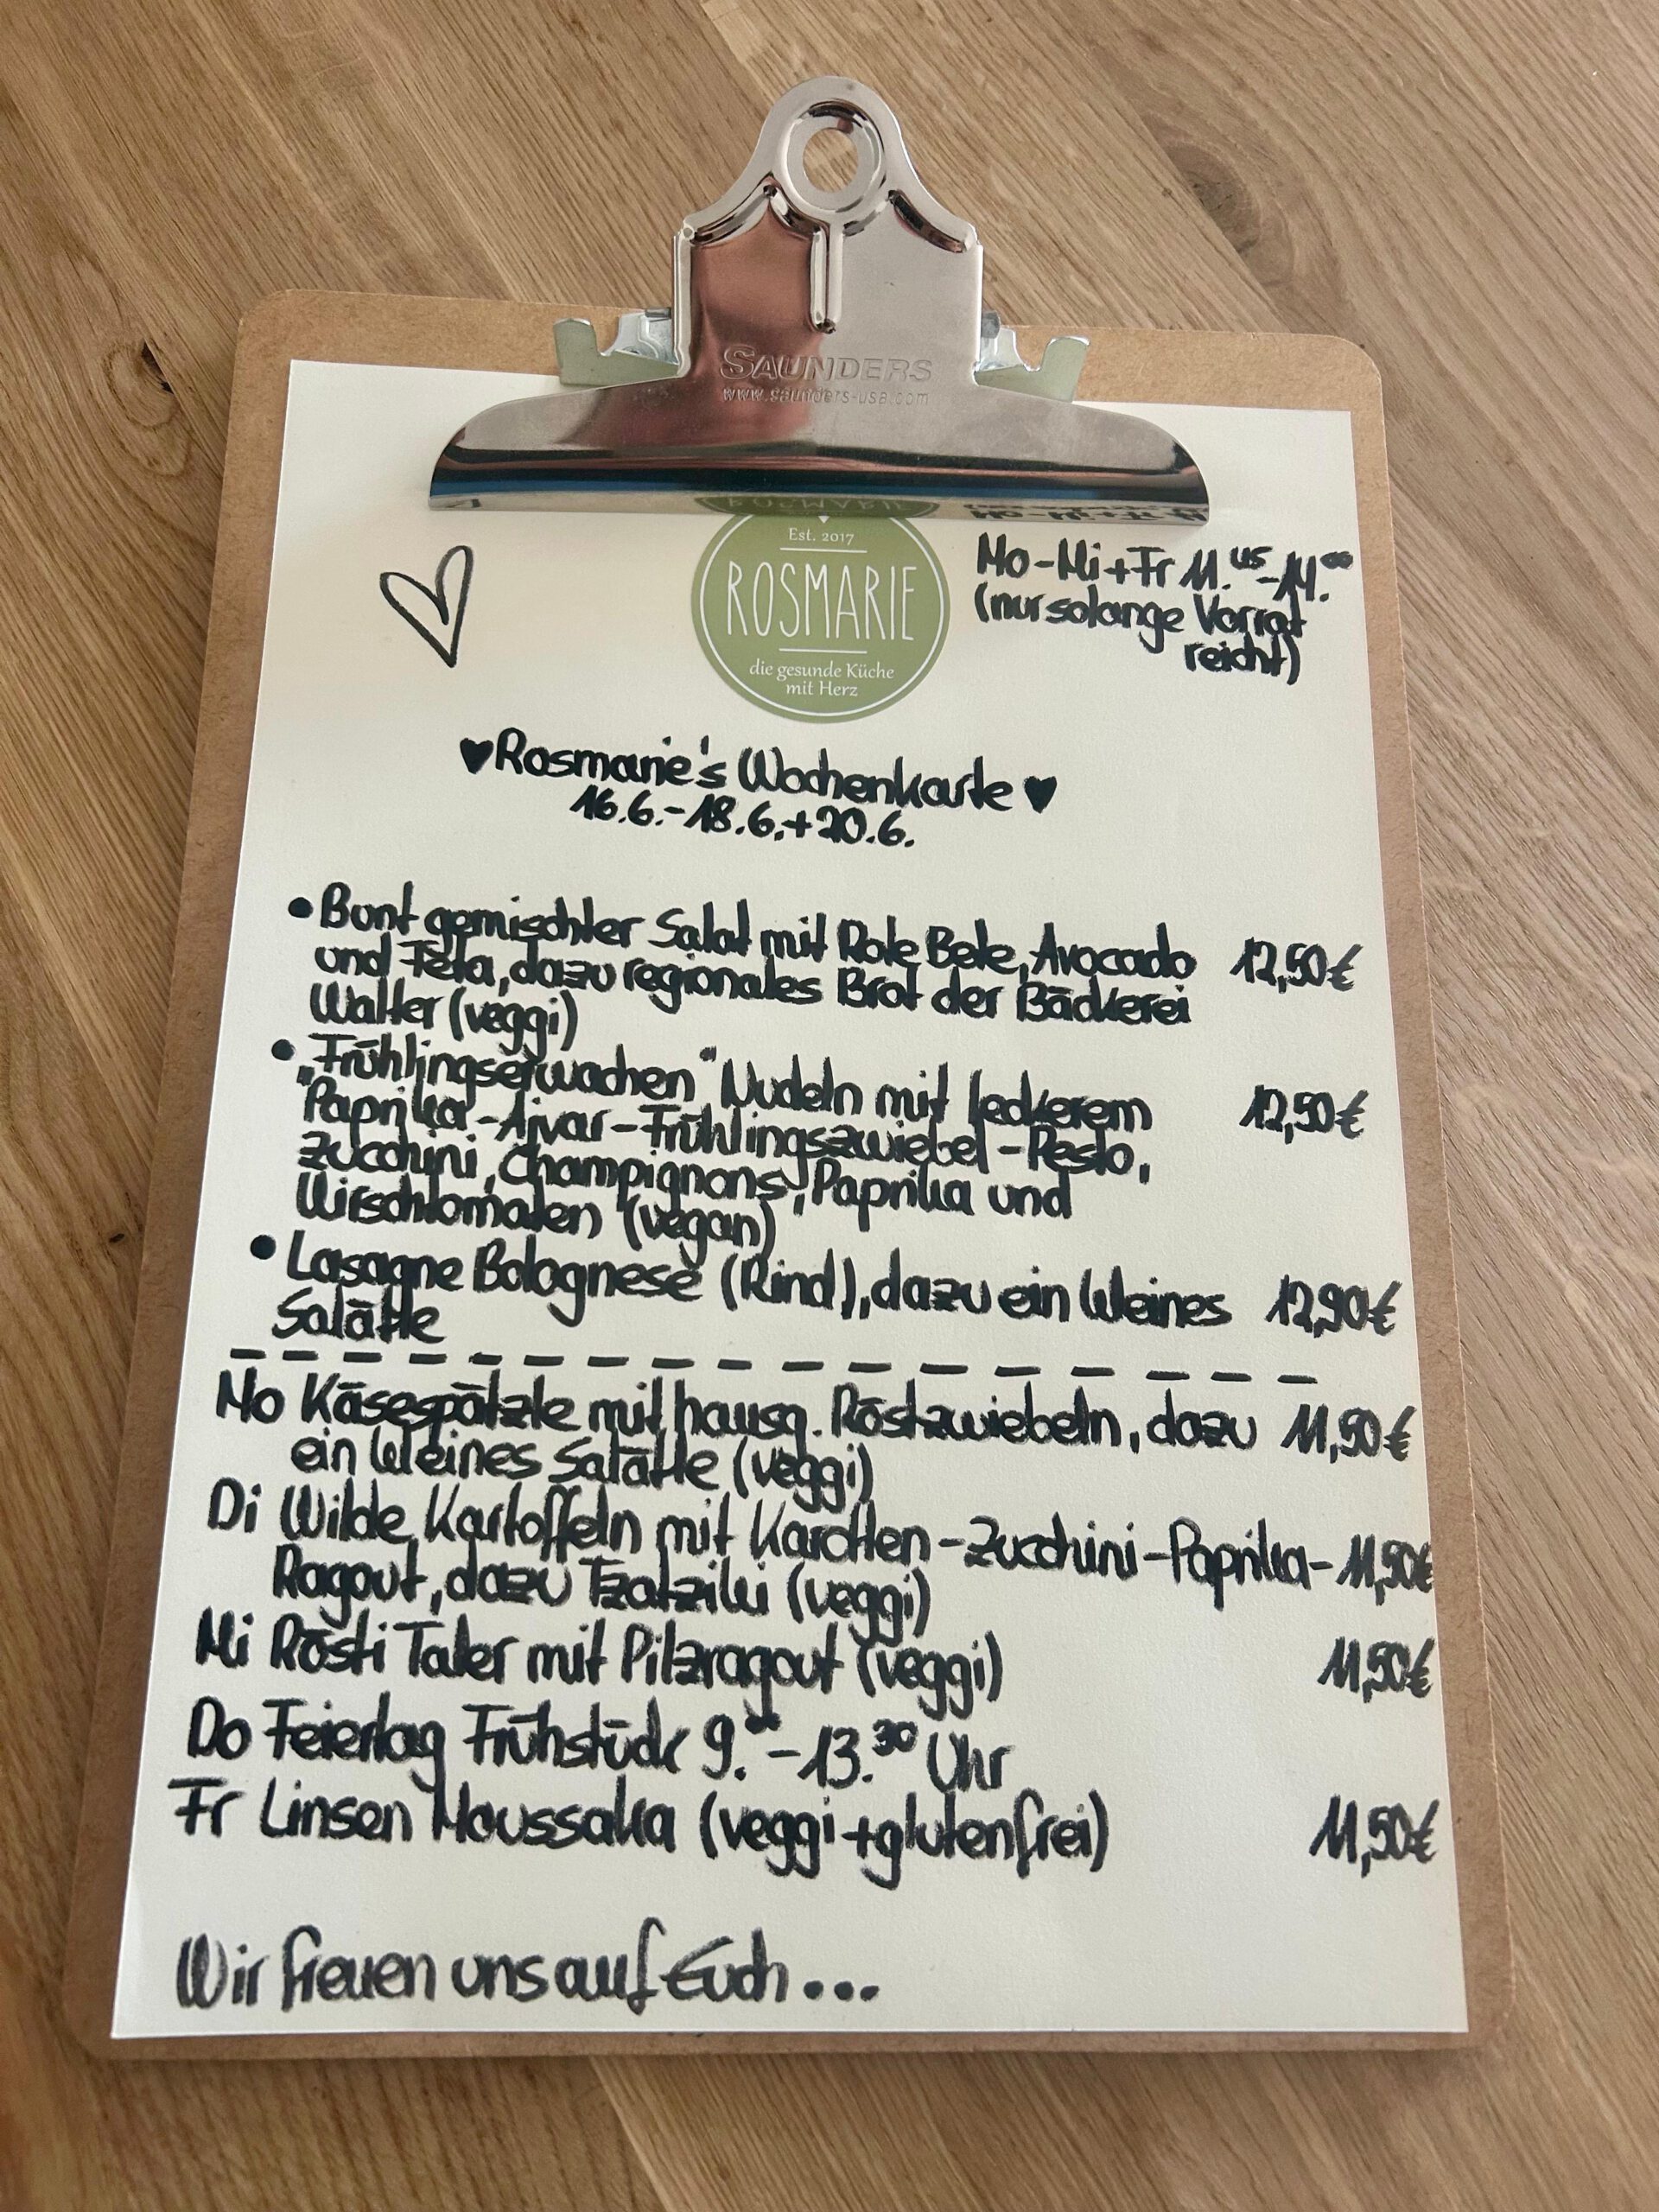 SAUNDERS
www.saunders-usa.com
Est. 2017
ROSMARIE
die gesunde Küche
mit Herz
Mo-Mi+Fr 11.45-14.00
(nur solange Vorrat
reicht)
♥Rosmarie's Wochenkarte♥
16.6.-18.6.+20.6.
• Bunt gemischter Salat mit Rote Bete, Avocado 12,50€
und Feta, dazu regionales Brot der Bäckerei
Walter (veggi)
• „Frühlingserwachen" Nudeln mit leckerem 12,50€
Paprika-Ajvar-Frühlingszwiebel-Pesto,
Zucchini, Champignons, Paprika und
Kirschtomaten (vegan)
• Lasagne Bolognese (Rind), dazu ein kleines 12,90€
Salätle
Mo Käsespätzle mit hausg. Röstzwiebeln, dazu 11,50€
ein kleines Salätle (veggi)
Di Wilde Kartoffeln mit Karotten-Zucchini-Paprika- 11,50€
Ragout, dazu Tzatziki (veggi)
Mi Rösti Taler mit Pilzragout (veggi) 11,50€
Do Feiertag Frühstück 9.00-13.30 Uhr
Fr Linsen Moussaka (veggi+glutenfrei) 11,50€
Wir freuen uns auf Euch...